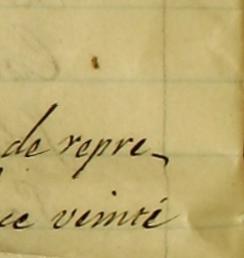 de repre-
ce veinté